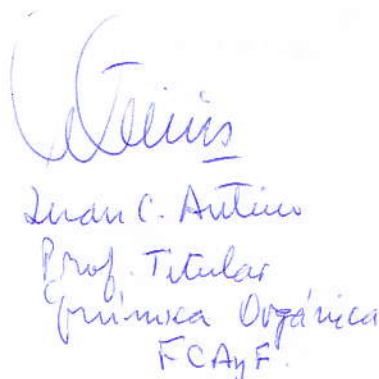 Juan C. Autino
Prof. Titular
Química Orgánica
FCAyF.